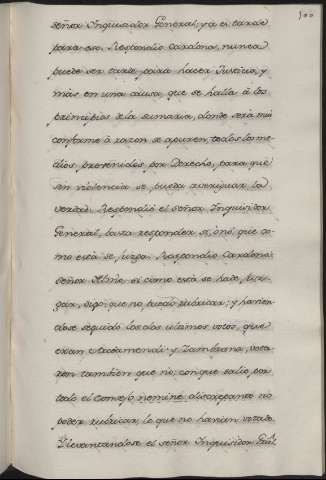 100
señor Inquisidor General, ya es tarde
para eso. Respondió Cardona, nunca
puede ser tarde para hacer Justicia, y
más en una causa que se halla à los
principios de la sumaria, donde será mui
conforme à razon se apuren, todos los me-
dios prevenidos por Derecho, para que
sin violencia se pueda averiguar la
verdad. Respondiò el señor Inquisidor
General, basta responder si, ò no, que co-
mo está se juzga. Respondio Cardona:
señor Ilmo si como està se hade, juz-
gar, digo: que no puedo rubricar; y havien-
dose seguido los dos ultimos votos, que
eran Arzeamendi y Zambrana, vota-
ron tambien que no; conque salio por
todo el Consejo nemine discrepante no
poder rubricar lo que no havian votado.
Y levantandose el señor Inquisidor Gral